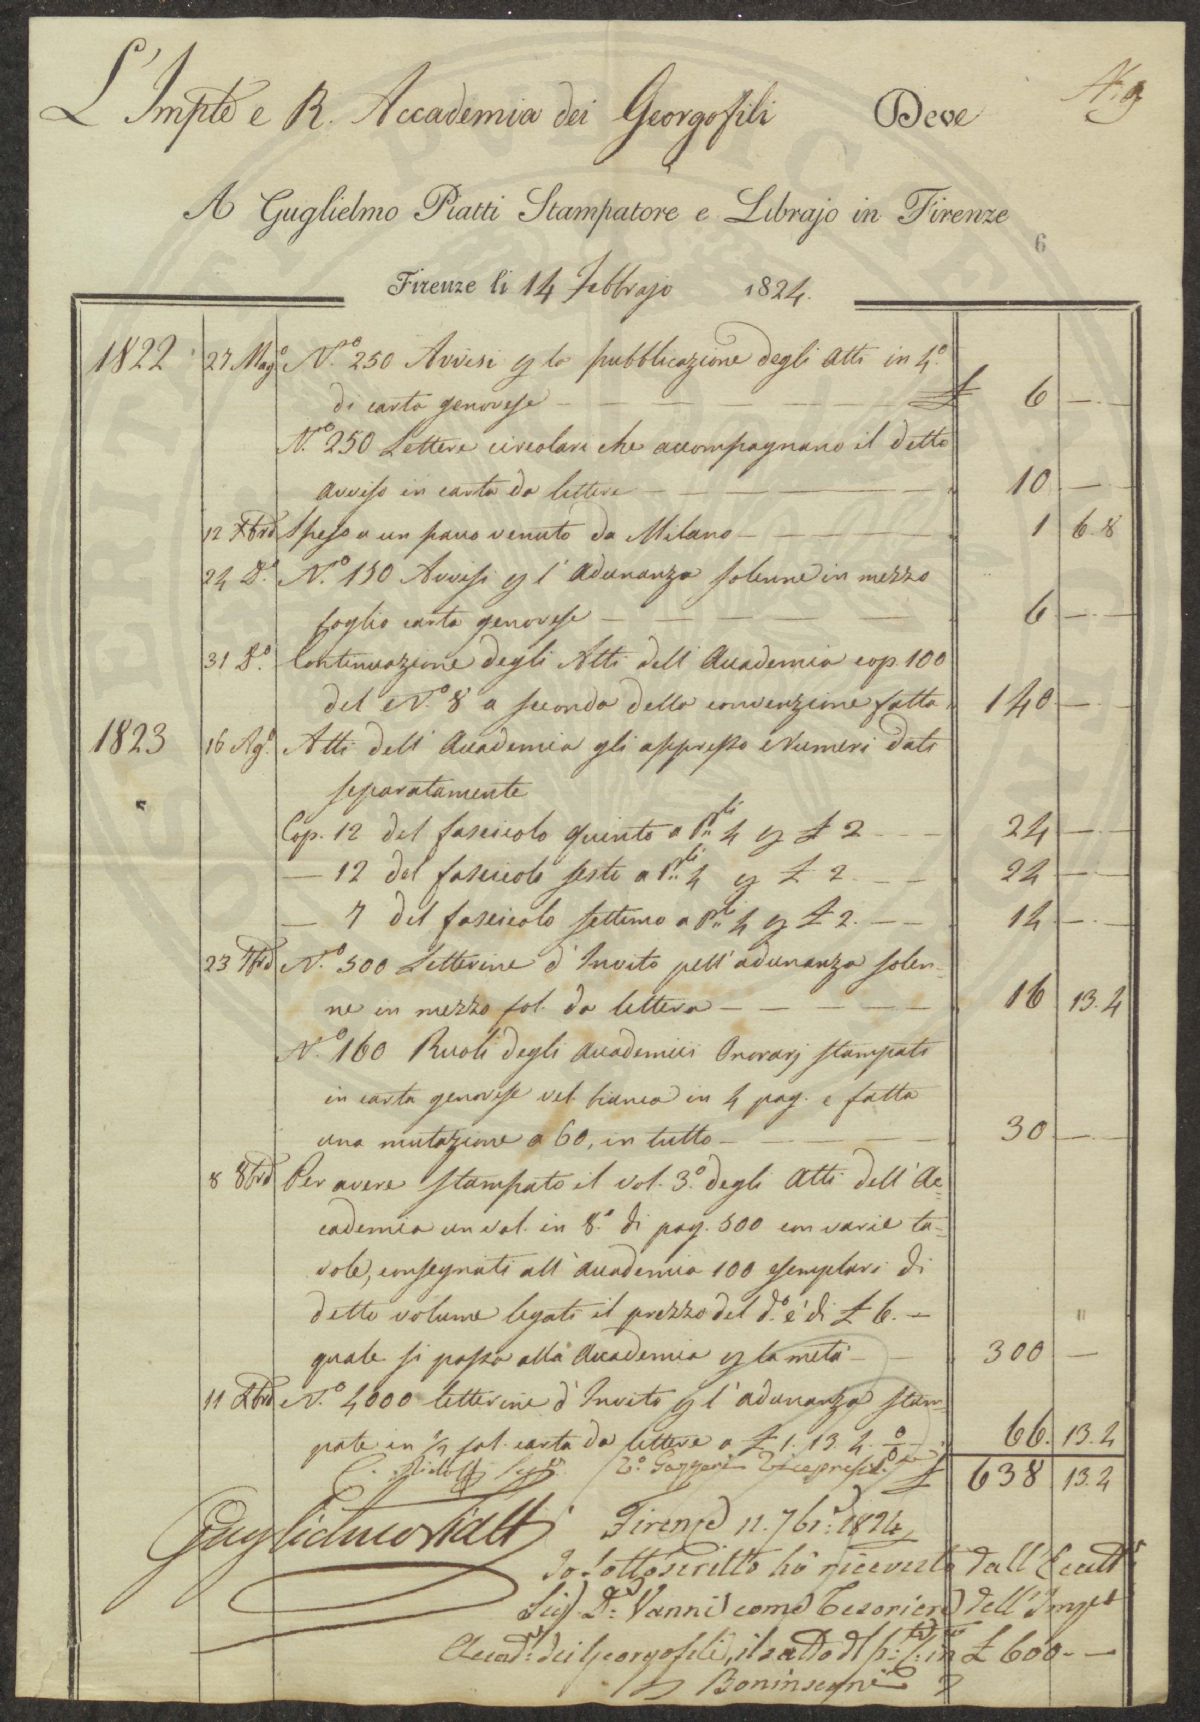 L'Imple e R. Accademia dei Georgofili Deve
A Guglielmo Piatti Stampatore e Librajo in Firenze
6
Firenze li 14 Febbrajo 1824.
1822 27 Mago. N.o 250 Avvisi p la pubblicazione degli Atti in 4.o
di carta genovese £ 6
N.o 250 Lettere circolari che accompagnano il detto
avviso in carta da lettere 10
12 Xbre Spese a un pacco venuto da Milano 1 6.8
24 D.o N.o 150 Avvisi p l'adunanza solenne in mezzo
foglio carta genovese 6
31 D.o Continuazione degli Atti dell'Accademia cop. 100
del N.o 8 a seconda della convenzione fatta 140
1823 16 Ago. Atti dell'Accademia gli appresso Numeri dati
separatamente
Cop. 12 del fascicolo quinto a Pli 4 p £ 2 24
— 12 del fascicolo sesto a Pli 4 p £ 2 24
— 7 del fascicolo settimo a Pli 4 p £ 2. 14
23 7bre N.o 500 Letterine d'Invito pell'adunanza solen-
ne in mezzo fol. da lettera 16 13.4
N.o 160 Ruoli degli Accademici Onorarj stampati
in carta genovese vel. bianca in 4 pag. e fatta
una mutazione a 60, in tutto 30
8 8bre Per avere stampato il vol. 3.o degli Atti dell'Ac-
cademia un vol. in 8.o di pag. 500 con varie ta-
vole, consegnati all'Accademia 100 esemplari di
detto volume legati il prezzo del d.o è di £ 6. —
quale si passa alla Accademia p la metà 300
11 Xbre N.o 4000 letterine d'Invito p l'adunanza stam-
pate in 1/2 fol. carta da lettere a £ 1.13.4. % 66. 13.4
C. Ridolfi Seg.o Gazzeri Vicepresid.e £ 638 13.4
Guglielmo Piatti
Firenze 11. 7bre 1824
Io sottoscritto ho ricevuto dall'Eccell
Sig. D. Vanni come Tesoriere dell'Imp
Accad. dei Georgofili, il saldo £ 600. —
Boninsegni